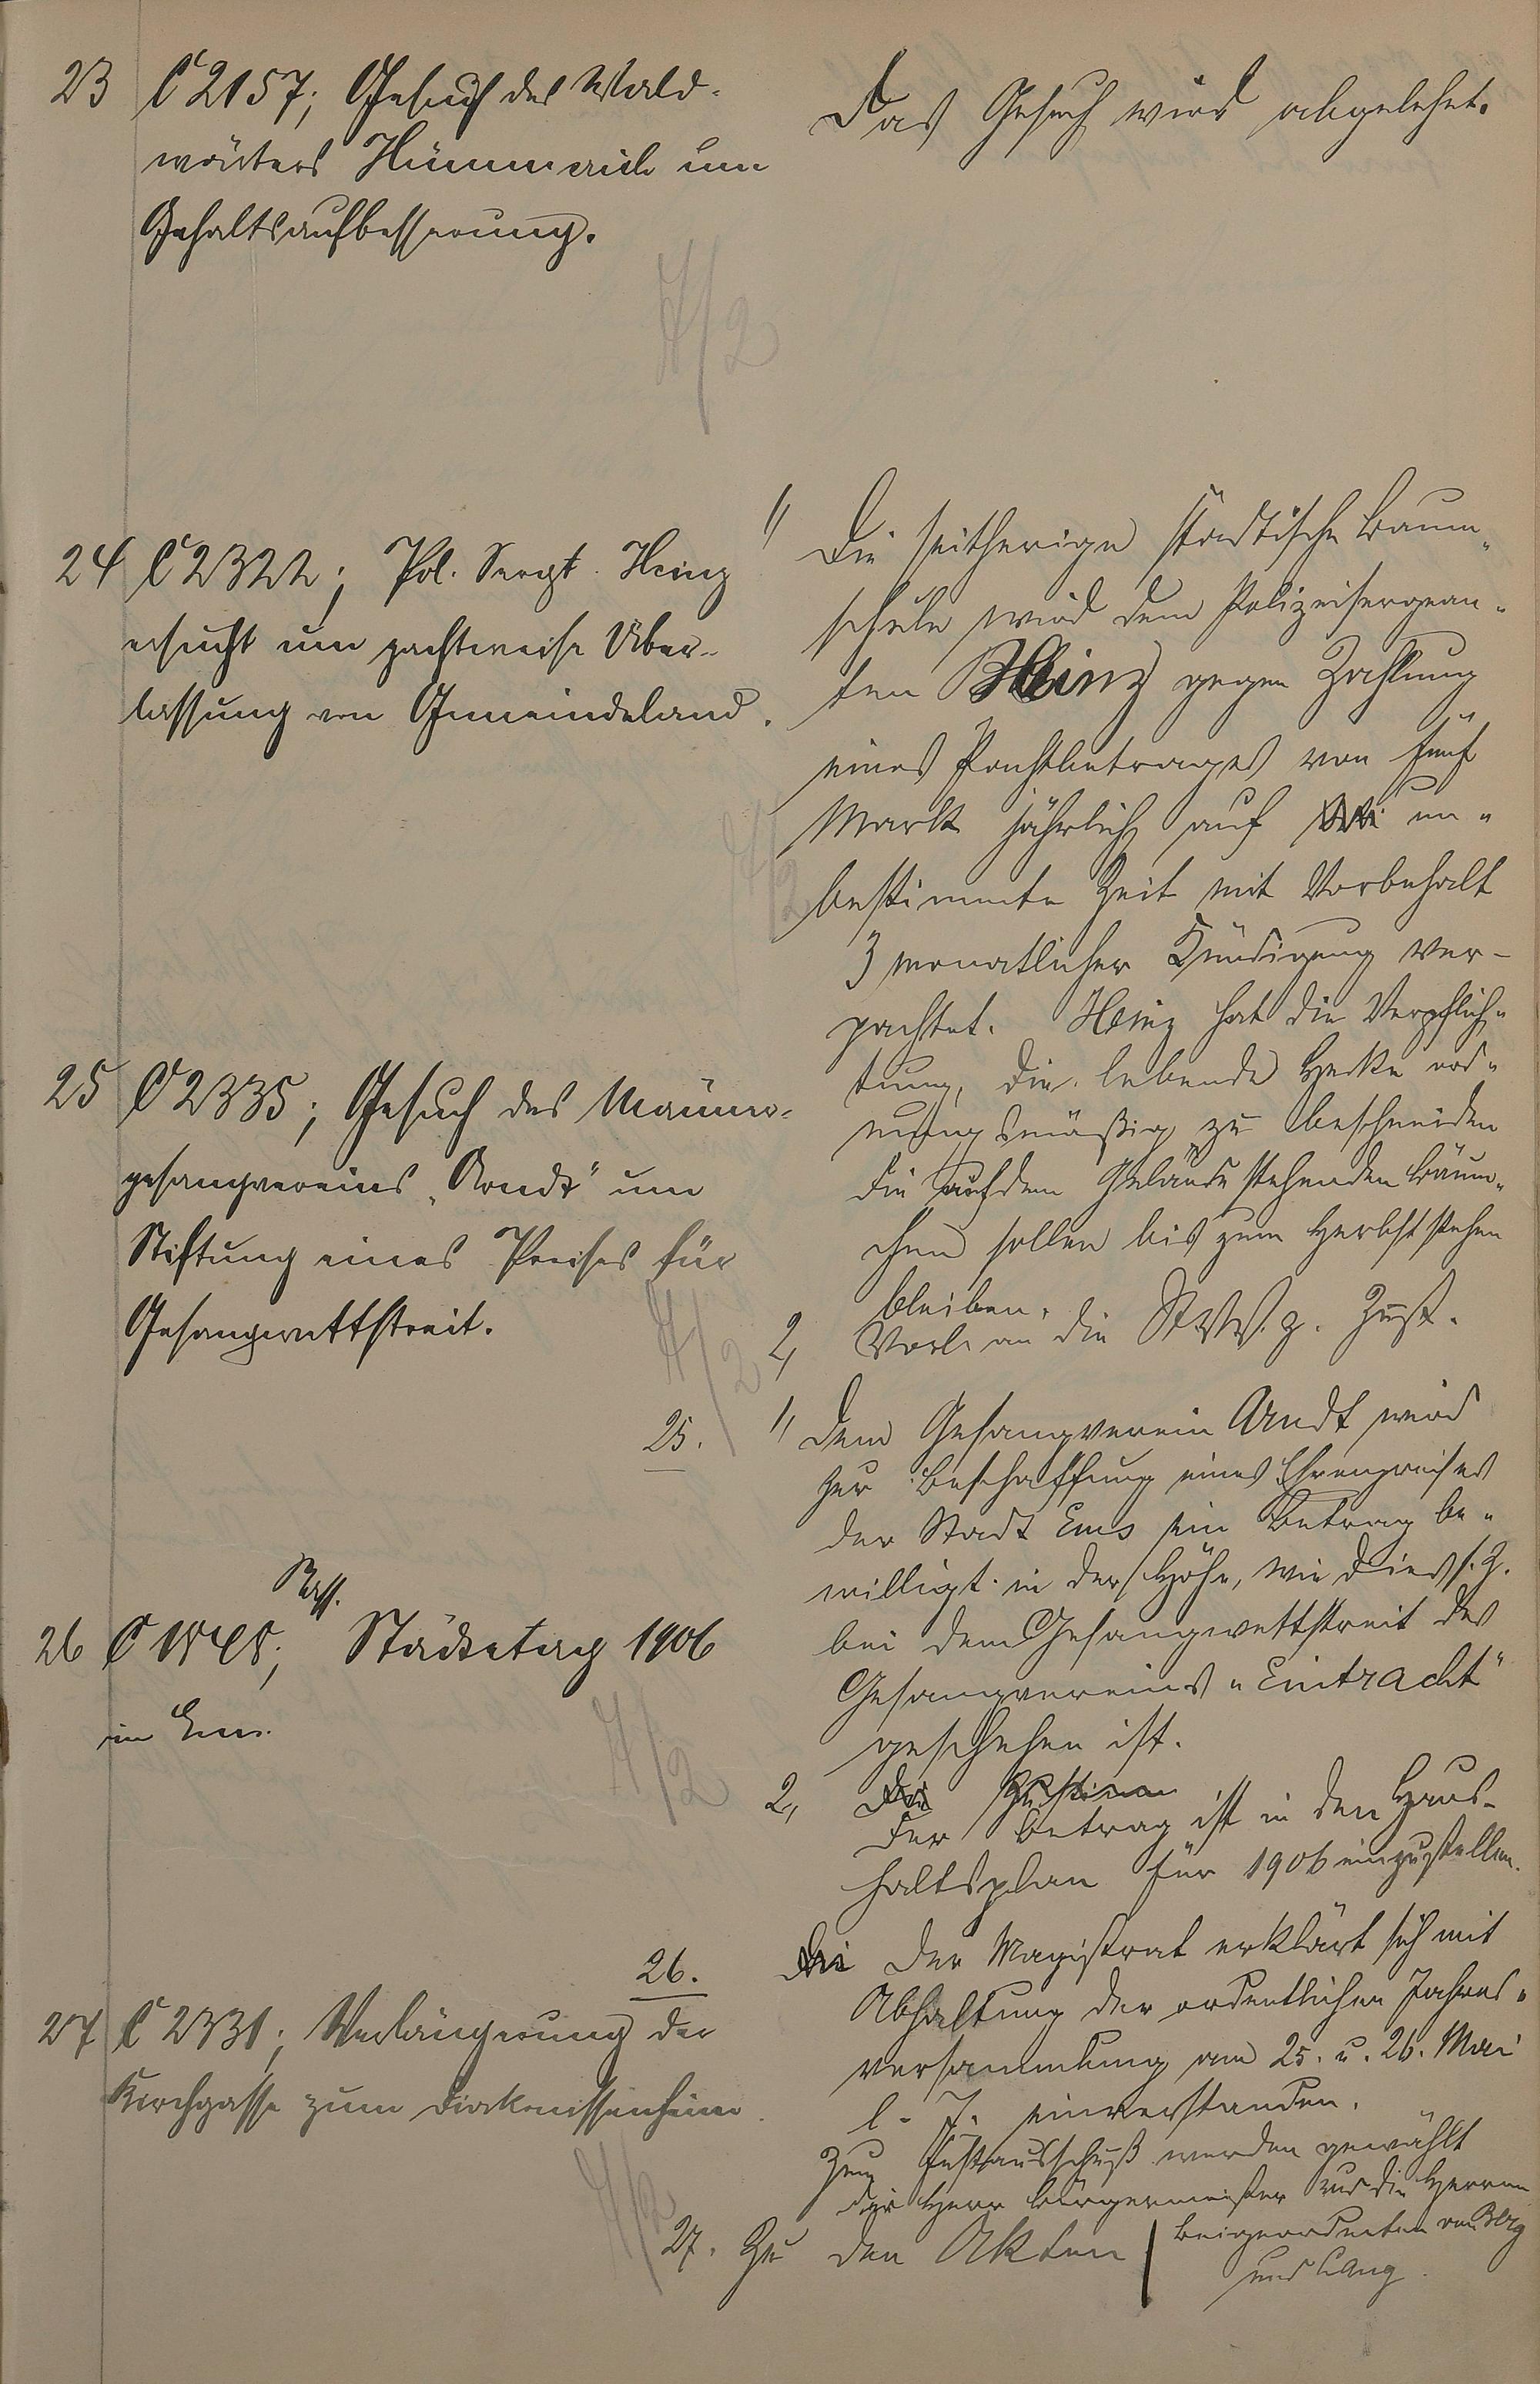 23 C 2157; Gesuch des Wald-
wärters Hümmerich um
Gehaltsaufbesserung.
Das Gesuch wird abgelehnt.
H/2
24 C 2322; Pol. Sergt. Heinz
ersucht um pachtweise Über-
lassung von Gemeindeland.
1) Die seitherige städtische Baum-
schule wird dem Polizeisergean-
ten Heinz gegen Zahlung
eines Pachtbetrages von fünf
Mark jährlich auf un-
bestimmte Zeit mit Vorbehalt
3 monatlicher Kündigung ver-
pachtet. Heinz hat die Verpflich-
tung, die lebende Hecke ord-
nungsmäßig zu beschneiden
die auf dem Gelände stehenden Bäum-
chen sollen bis zum Herbst stehen
bleiben.
2, Vorl. an die St.V.V. z. Zust.
H/2
25 C 2335; Gesuch des Männer-
gesangvereins "Arndt" um
Stiftung eines Preises für
Gesangwettstreit.
H/2
25. 1) Dem Gesangverein Arndt wird
zur Beschaffung eines Ehrenpreises
der Stadt Ems ein Betrag be-
willigt in der Höhe, wie dies s. Z.
bei dem Gesangwettstreit des
Gesangvereins "Eintracht"
geschehen ist.
2, Der Betrag ist in den Haus-
haltsplan für 1906 einzustellen.
26 C Nass. Städtetag 1906
in Ems.
H/2
26. Der Magistrat erklärt sich mit
Abhaltung der ordentlichen Jahres-
versammlung am 25. u. 26. Mai
l. J. einverstanden.
Zum Festausschuß werden gewählt
der Herr Bürgermeister und die Herren
Beigeordneten von Berg
und Lang.
27 C 2331; Verlängerung der
Kirchgasse zum Diakonissenheim.
H/2
27. Zu den Akten